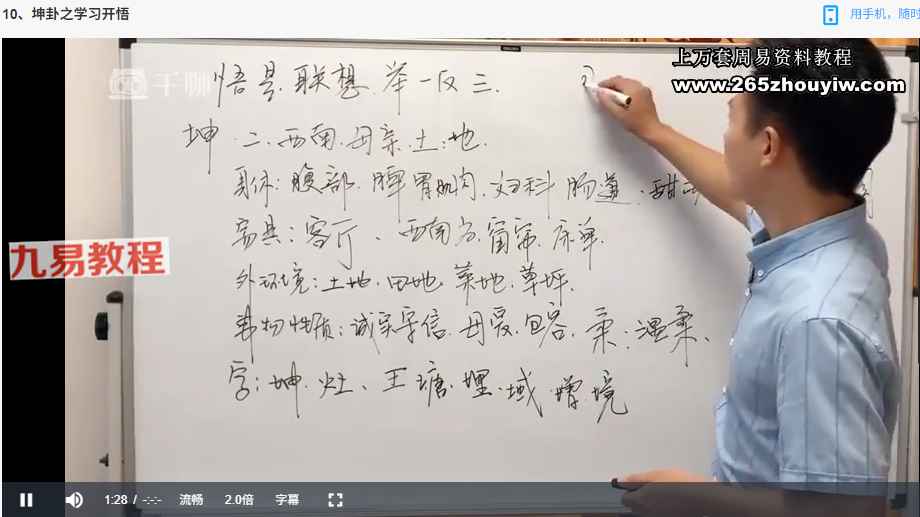 10、坤卦之学习开悟
用手机，随时
上万套周易资料教程
www.265zhouyiw.com
悟易.联想.举一反三.
坤.二.西南.母亲.土.地.
身体:腹部.脾胃肌肉.妇科 肠道.甜
家具:客厅、西南方.窗帘.床单.
外环境:土地.田地.菜地.草坪.
九易教程
事物性质:诚实守信.母爱.包容.柔:温柔、
字:坤.灶、王 塘.埋.域.增.境
1:28 / -:-:- 流畅 2.0倍 字幕